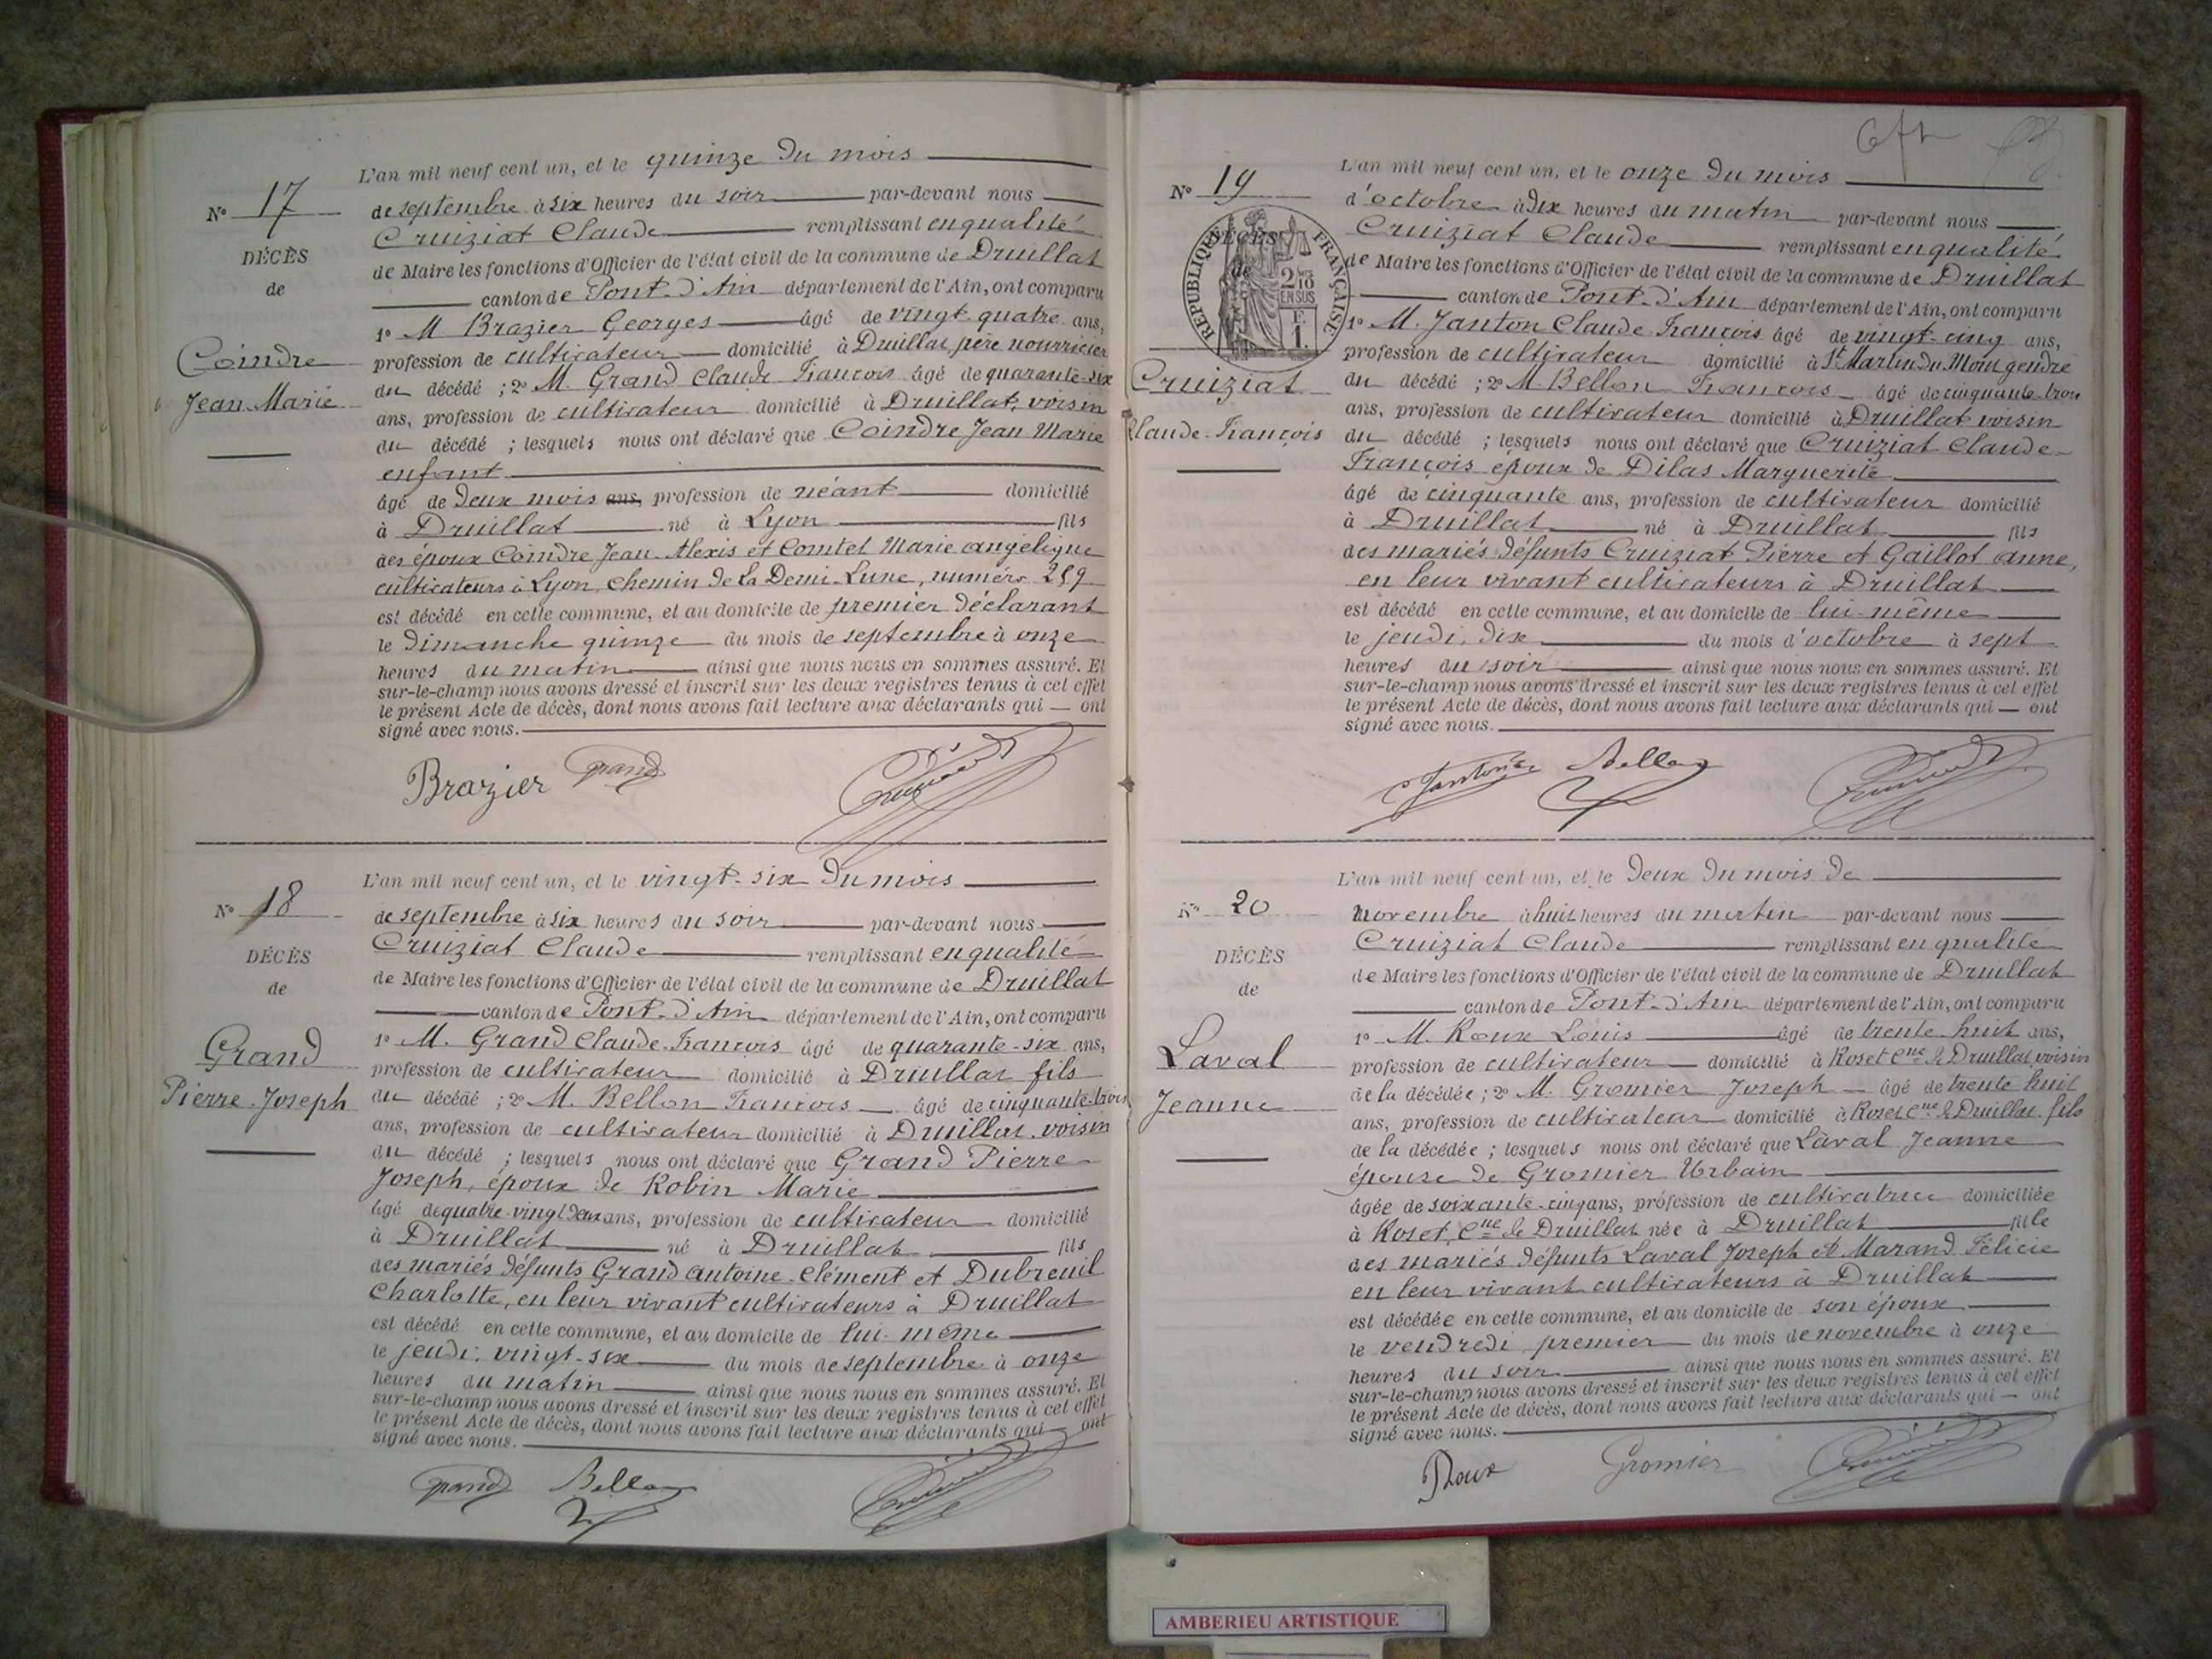 L'an mil neuf cent un, et le quinze du mois
N° 17
de septembre à six heures du soir par-devant nous
Cruiziat Claude remplissant en qualité
DÉCÈS
de
de Maire les fonctions d'Officier de l'état civil de la commune de Druillat
canton de Pont-d'Ain département de l'Ain, ont comparu
1° M Brazier Georges âgé de vingt quatre ans,
Coindre
Jean Marie
profession de cultivateur domicilié à Druillat, père nourricier
du décédé ; 2° M. Grand Claude François âgé de quarante-six
ans, profession de cultivateur domicilié à Druillat, voisin
du décédé ; lesquels nous ont déclaré que Coindre Jean Marie
enfant
âgé de deux mois ans, profession de néant domicilié
à Druillat né à Lyon fils
des époux Coindre Jean-Alexis et Comtet Marie angélique
cultivateurs à Lyon, chemin de la Demi-Lune, numéro 259
est décédé en cette commune, et au domicile de premier déclarant
le dimanche quinze du mois de septembre à onze
heures du matin ainsi que nous nous en sommes assuré. Et
sur-le-champ nous avons dressé et inscrit sur les deux registres tenus à cet effet
le présent Acte de décès, dont nous avons fait lecture aux déclarants qui — ont
signé avec nous.
Brazier Grand Cruiziat
L'an mil neuf cent un, et le vingt-six du mois
N° 18
de septembre à six heures du soir par-devant nous
Cruiziat Claude remplissant en qualité
DÉCÈS
de
de Maire les fonctions d'Officier de l'état civil de la commune de Druillat
canton de Pont-d'Ain département de l'Ain, ont comparu
1° M. Grand Claude-François âgé de quarante-six ans,
Grand
Pierre-Joseph
profession de cultivateur domicilié à Druillat fils
du décédé ; 2° M. Bellon François âgé de cinquante-trois
ans, profession de cultivateur domicilié à Druillat, voisin
du décédé ; lesquels nous ont déclaré que Grand Pierre
Joseph, époux de Robin Marie
âgé de quatre-vingt deux ans, profession de cultivateur domicilié
à Druillat né à Druillat fils
des mariés défunts Grand Antoine-Clément et Dubreuil
Charlotte, en leur vivant cultivateurs à Druillat
est décédé en cette commune, et au domicile de lui-même
le jeudi, vingt-six du mois de septembre à onze
heures du matin ainsi que nous nous en sommes assuré. Et
sur-le-champ nous avons dressé et inscrit sur les deux registres tenus à cet effet
le présent Acte de décès, dont nous avons fait lecture aux déclarants qui — ont
signé avec nous.
Grand Bellon Cruiziat
L'an mil neuf cent un, et le onze du mois
N° 19
d'octobre à dix heures du matin par-devant nous
Cruiziat Claude remplissant en qualité
DÉCÈS
de
RÉPUBLIQUE FRANÇAISE
2/10
EN SUS
F.
1.
de Maire les fonctions d'Officier de l'état civil de la commune de Druillat
canton de Pont-d'Ain département de l'Ain, ont comparu
1° M. Janton Claude-François âgé de vingt-cinq ans,
Cruiziat
Claude-François
profession de cultivateur domicilié à St Martin du Mont gendre
du décédé ; 2° M. Bellon François âgé de cinquante-trois
ans, profession de cultivateur domicilié à Druillat voisin
du décédé ; lesquels nous ont déclaré que Cruiziat Claude-
François époux de Dilas Marguerite
âgé de cinquante ans, profession de cultivateur domicilié
à Druillat né à Druillat fils
des mariés défunts Cruiziat Pierre et Gaillot anne,
en leur vivant cultivateurs à Druillat
est décédé en cette commune, et au domicile de lui-même
le jeudi, dix du mois d'octobre à sept
heures du soir ainsi que nous nous en sommes assuré. Et
sur-le-champ nous avons dressé et inscrit sur les deux registres tenus à cet effet
le présent Acte de décès, dont nous avons fait lecture aux déclarants qui — ont
signé avec nous.
Janton Bellon Cruiziat
L'an mil neuf cent un, et le deux du mois de
N° 20
novembre à huit heures du matin par-devant nous
Cruiziat Claude remplissant en qualité
DÉCÈS
de
de Maire les fonctions d'Officier de l'état civil de la commune de Druillat
canton de Pont-d'Ain département de l'Ain, ont comparu
1° M. Roux Louis âgé de trente-huit ans,
Laval
Jeanne
profession de cultivateur domicilié à Roset cne de Druillat, voisin
de la décédée ; 2° M. Gromier Joseph âgé de trente huit
ans, profession de cultivateur domicilié à Roset cne de Druillat, fils
de la décédée ; lesquels nous ont déclaré que Laval Jeanne
épouse de Gromier Urbain
âgée de soixante-cinq ans, profession de cultivatrice domiciliée
à Roset, cne de Druillat née à Druillat fille
des mariés défunts Laval Joseph et Marand Félicie
en leur vivant cultivateurs à Druillat
est décédée en cette commune, et au domicile de son époux
le vendredi premier du mois de novembre à onze
heures du soir ainsi que nous nous en sommes assuré. Et
sur-le-champ nous avons dressé et inscrit sur les deux registres tenus à cet effet
le présent Acte de décès, dont nous avons fait lecture aux déclarants qui — ont
signé avec nous.
Roux Gromier Cruiziat
AMBERIEU ARTISTIQUE